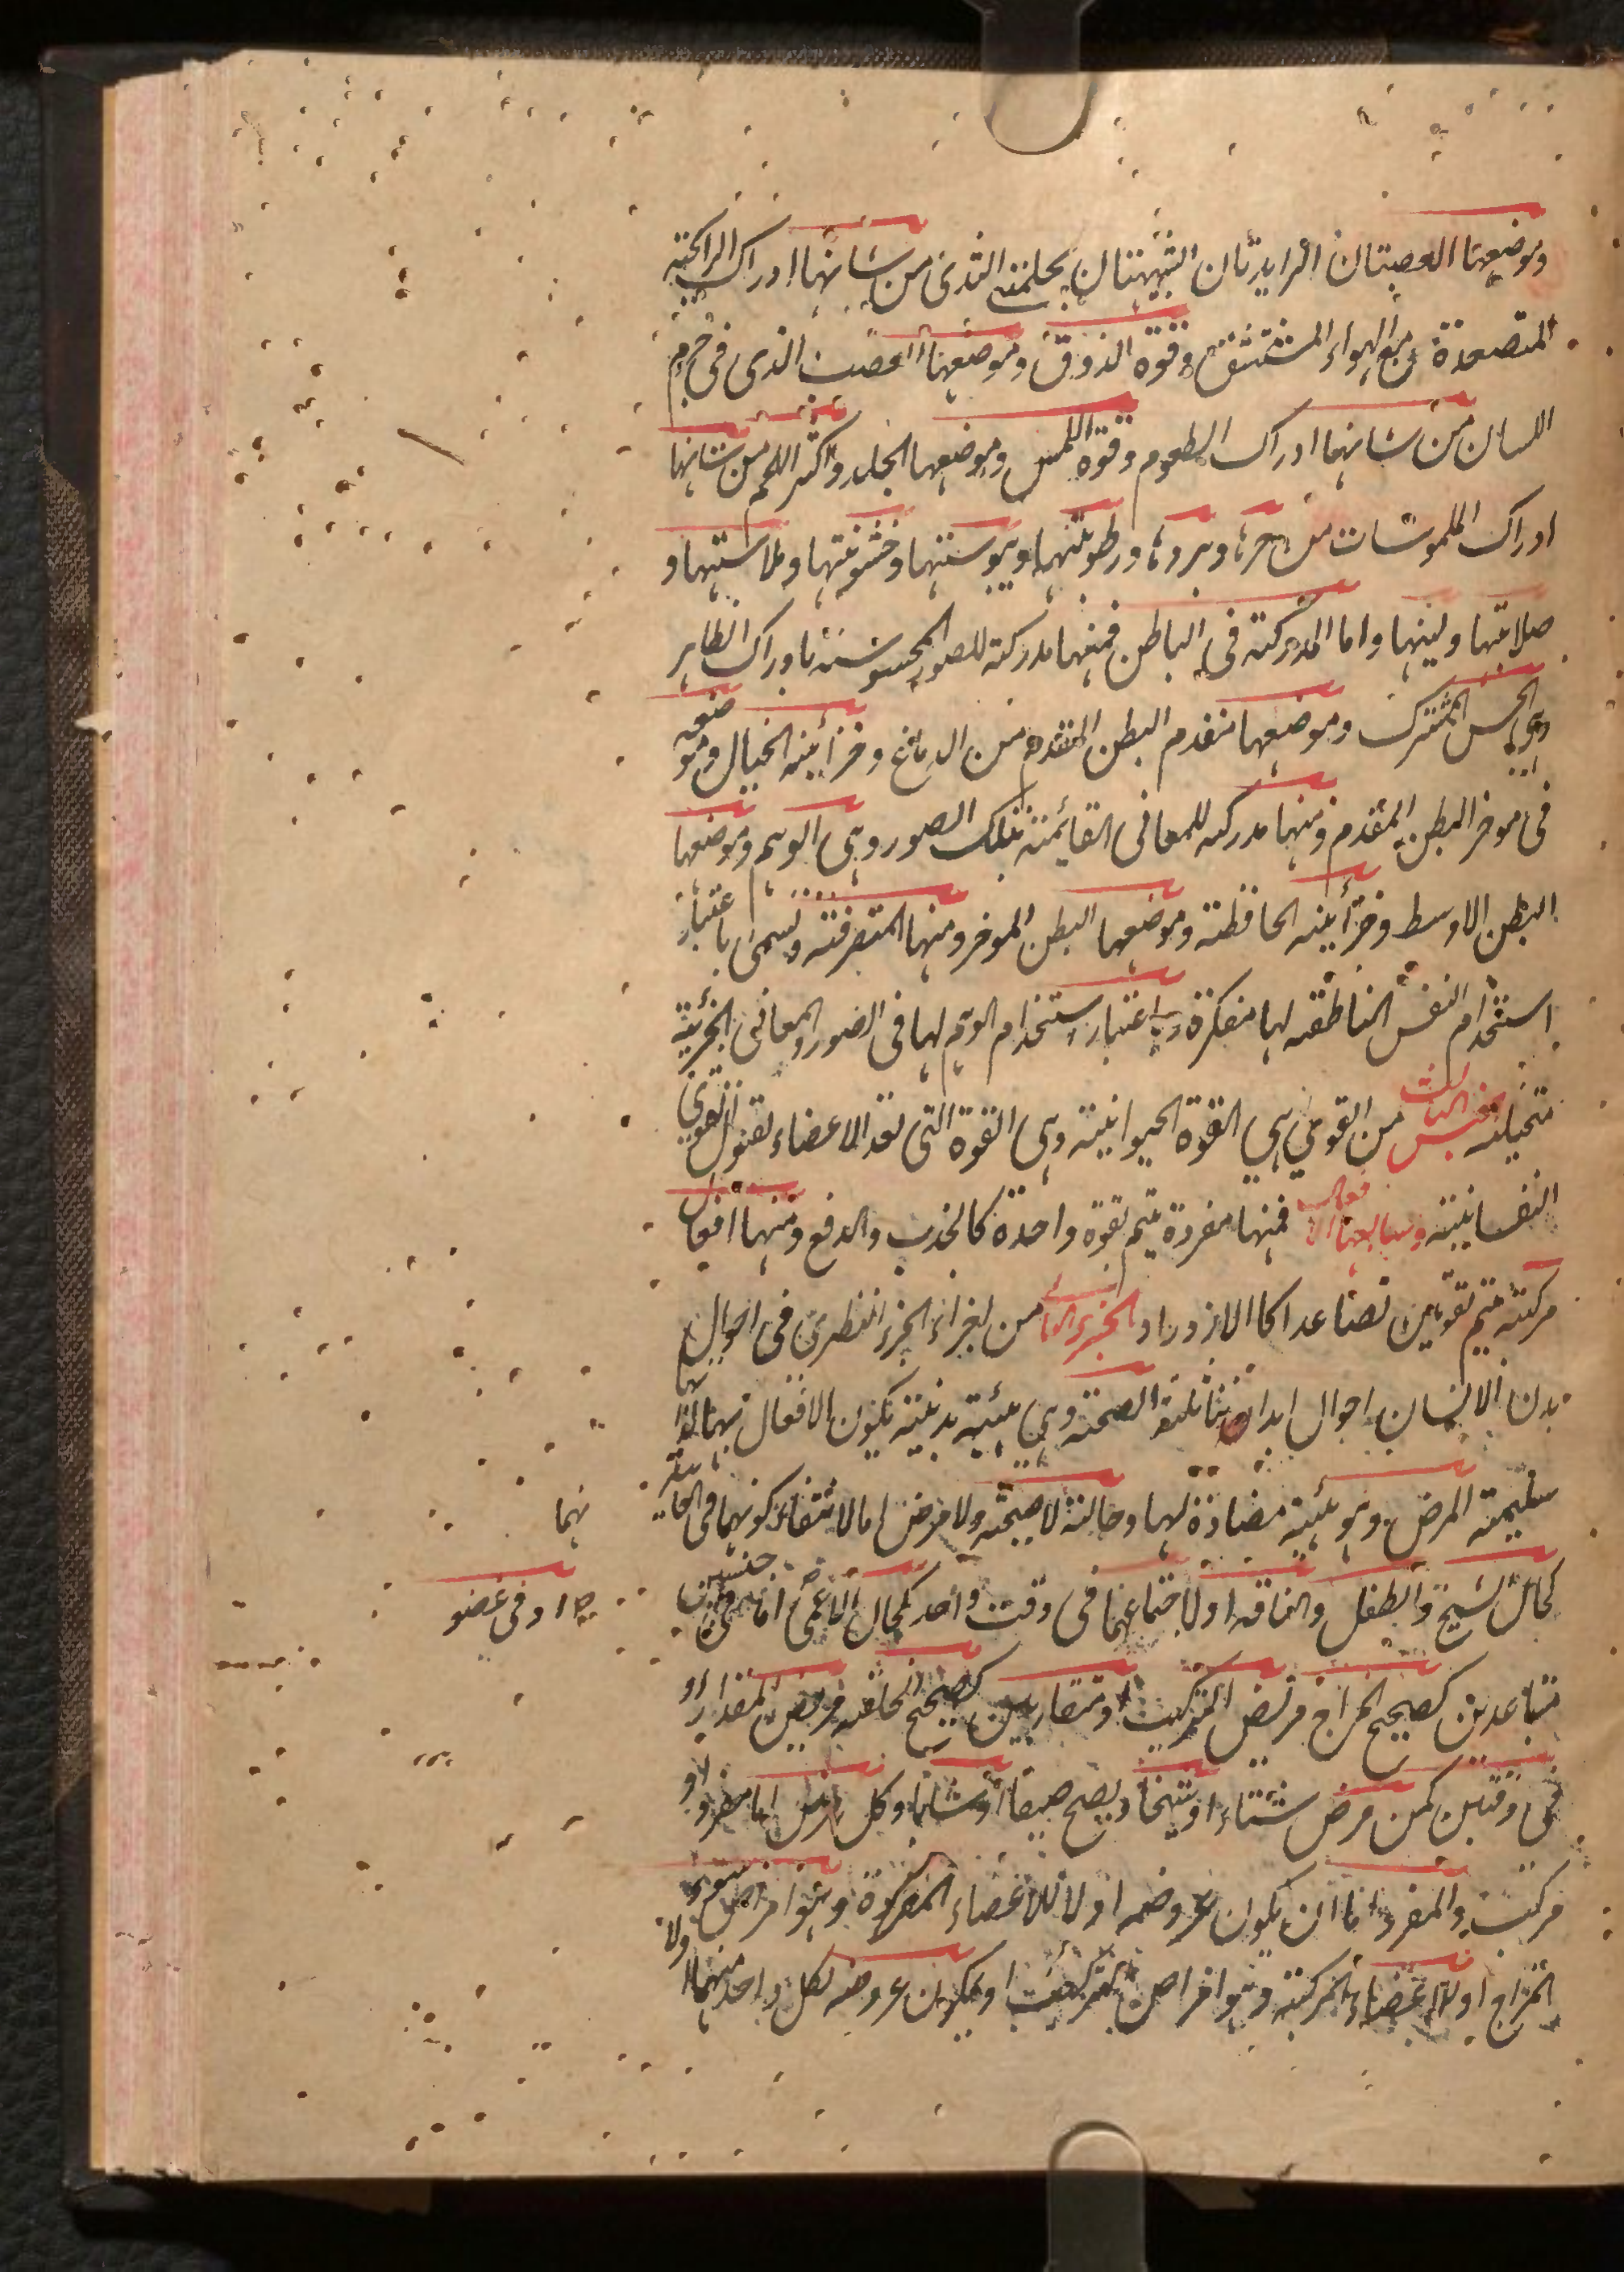 وموضعها العصبتان الزايدتان الشبيهتان بحلمتى الثدى من شانها ادراك الرائحة
المتصعدة مع الهواء المستنشق وقوة الذوق وموضعها العصب الذى فى جرم
اللسان من شانها ادراك الطعوم وقوة اللمس وموضعها الجلد واكثر اللحم من شانها
ادراك الملموسات من حرها وبردها ورطوبتها ويبوستها وخشونتها وملاستها و
صلابتها ولينها واما المدركة فى الباطن فمنها مدركة للصور المحسوسة بادراك الظاهر
وهى الحس المشترك وموضعها مقدم البطن المقدم من الدماغ وخزانته الخيال وموضعه
فى موخر البطن المقدم ومنها مدركة للمعانى القائمة بتلك الصور وهى الوهم وموضعها
البطن الاوسط وخزانته الحافظة وموضعها البطن الموخر ومنها المتصرفة وتسمى باعتبار
استخدام النفس الناطقة لها مفكرة وباعتبار استخدام الوهم لها فى الصور والمعانى الجزئية
متخيلة جنس الثالث من القوى هى القوة الحيوانية وهى القوة التى تعد الاعضاء لقبول القوى
النفسانية وسابعها الافعال فمنها مفردة يتم بقوة واحدة كالجذب والدفع ومنها افعال
مركبة يتم بقوتين فصاعدا كالازدراد الجزء الثانى من اجزاء الجزء النظرى فى احوال
بدن الانسان احوال ابدان ثلثة الصحة وهى هيئة بدنية يكون الافعال بها لذاتها
سليمة المرض وهو هيئة مضادة لها وحالة لا صحة ولا مرض اما لانتفاء كونهما فى الغاية
كحال الشيخ والطفل والناقه او لاجتماعهما فى وقت واحد كحال الاعمى اما فى جنسين
متباعدين كصحيح المزاج مريض التركيب او متقاربين كصحيح الخلقة مريض المقدار او
فى وقتين كمن مرض شتاء او شيخا ويصح صيفا او شابا وكل مرض اما مفرد او
مركب والمفرد اما ان يكون عروضه اولا للاعضاء المفردة وهو امراض سوء
المزاج او للاعضاء المركبة وهو امراض التركيب او يكون عروضه لكل واحد منهما اولا
نهما
او فى عضو